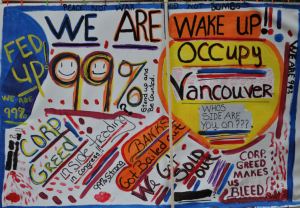 PEACE NOT WAR
FOOD NOT BOMBS
WE ARE
99%
WAKE UP!!
OCCUPY
Vancouver
WHOS
SIDE ARE
YOU ON???
FED
UP
WE ARE
99%
CORP
GREED
Inside Trading
in Congress
99% Strong
Stand up and
Be Counted
BANKS
Got Bailed Out
We Got
SOLD OUT
CORP.
GREED
MAKES
US
BLEED